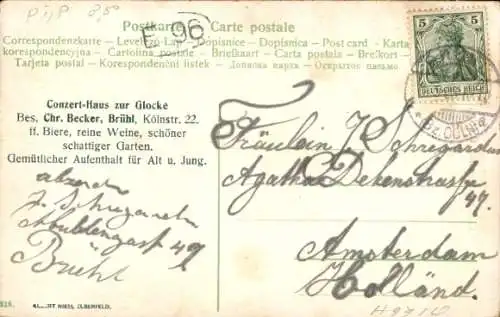 Postkarte — Carte postale
F 96
Correspondenzkarte — Levelező-Lap — Dopisnice — Dopisnica — Post card — Karta
korespondencyjna — Cartolina postale — Briefkaart — Carta postale — Brefkort —
Tarjeta postal — Korespondenční lístek — Дописна карта — Открытое письмо
5 5
DEUTSCHES REICH
(BZ. CÖLN)
Conzert-Haus zur Glocke
Bes. Chr. Becker, Brühl, Kölnstr. 22.
ff. Biere, reine Weine, schöner
schattiger Garten.
Gemütlicher Aufenthalt für Alt u. Jung.
Fräulein J. Schregardus
Agatha Dekenstrasse
47.
Amsterdam
Holländ.
J. Schregardus
49
Brühl